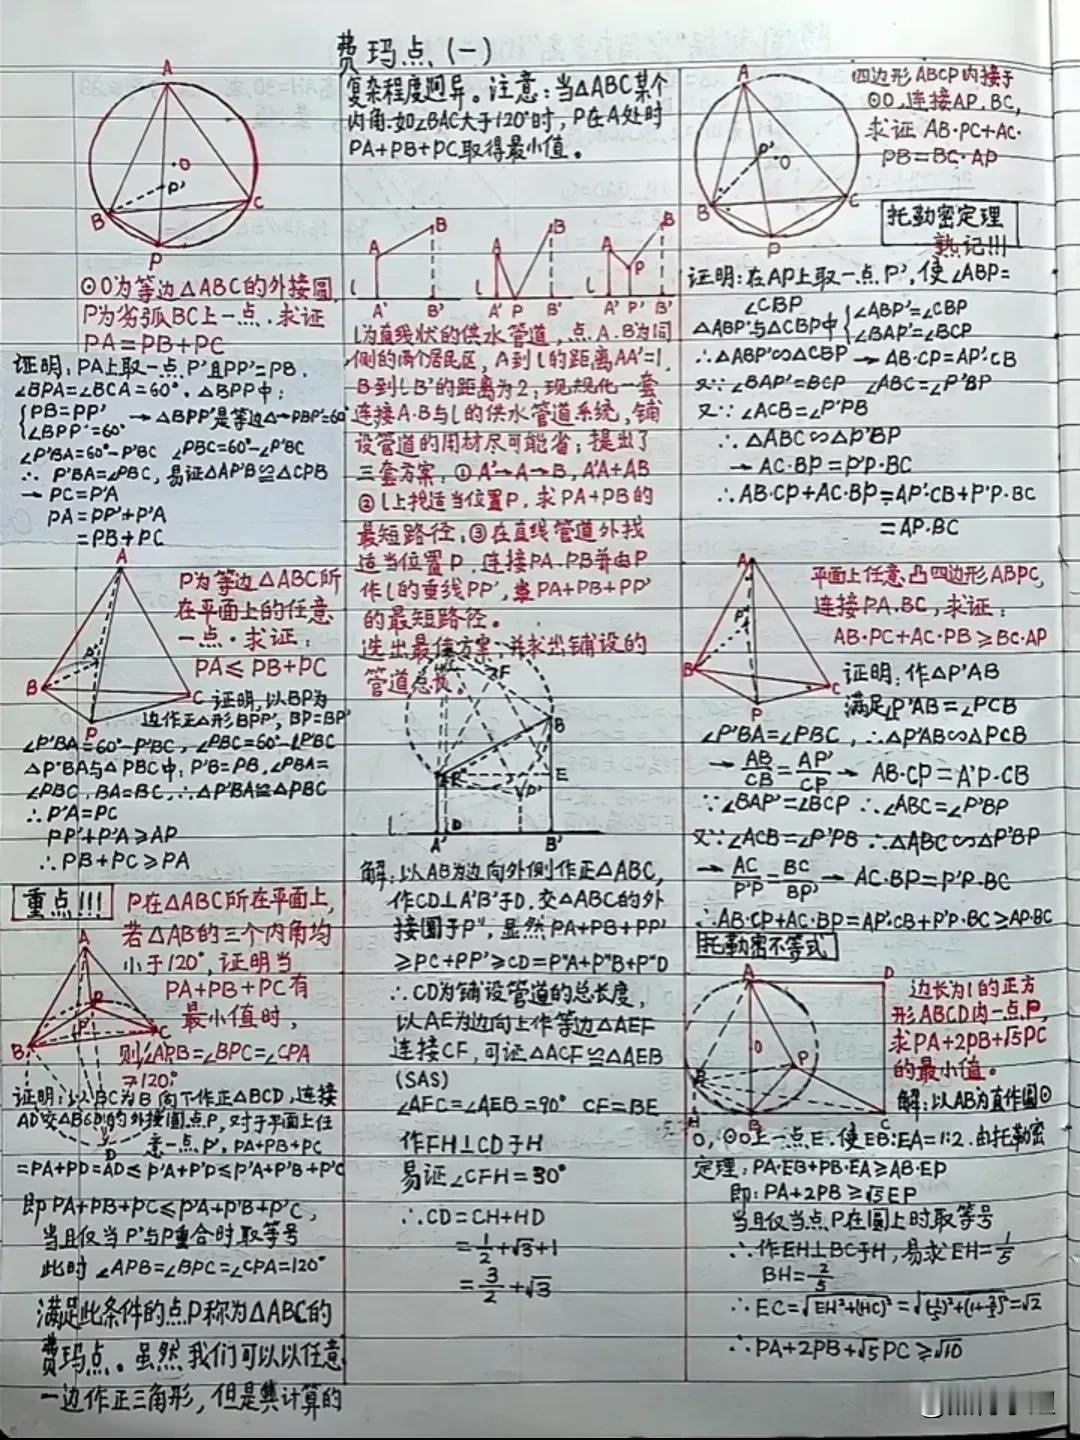 费玛点(一)
A
O
P'
B
C
P
⊙O为等边△ABC的外接圆
P为劣弧BC上一点.求证
PA=PB+PC
证明:PA上取一点P'且PP'=PB.
∠BPA=∠BCA=60°.△BPP'中:
{PB=PP'
∠BPP'=60° →△BPP'是等边△→PBP'=60°
∠P'BA=60°-P'BC ∠PBC=60°-∠P'BC
∴ P'BA=∠PBC,易证△AP'B≌△CPB
→ PC=P'A
PA=PP'+P'A
=PB+PC
A
B
C
P
P为等边△ABC所
在平面上的任意
一点.求证:
PA≤PB+PC
证明,以BP为
边作正△形BPP',BP=BP'
∠P'BA=60°-P'BC,∠PBC=60°-∠P'BC
△P'BA与△PBC中:P'B=PB.∠PBA=
∠PBC,BA=BC,∴△P'BA≌△PBC
∴P'A=PC
PP'+P'A≥AP
∴PB+PC≥PA
重点!!!
P在△ABC所在平面上,
若△AB的三个内角均
小于120°,证明当
PA+PB+PC有
最小值时,
则∠APB=∠BPC=∠CPA
=120°
A
P
P'
B
C
D
证明:以BC为B向下作正△BCD,连接
AD交△BCD的外接圆点P,对于平面上任
意一点P',PA+PB+PC
=PA+PD=AD≤P'A+P'D≤P'A+P'B+P'C
即PA+PB+PC≤P'A+P'B+P'C,
当且仅当P'与P重合时取等号
此时∠APB=∠BPC=∠CPA=120°
满足此条件的点P称为△ABC的
费玛点。虽然我们可以以任意
一边作正三角形,但是其计算的
复杂程度迥异。注意:当△ABC某个
内角.如∠BAC大于120°时,P在A处时
PA+PB+PC取得最小值。
A B A B A B
P
l A' B' l A' P B' l A' P' B'
l为直线状的供水管道,点A.B为同
侧的两个居民区,A到l的距离AA'=1,
B到l B'的距离为2,现规化一套
连接A.B与l的供水管道系统,铺
设管道的用材尽可能省;提出了
三套方案,①A'→A→B,A'A+AB
②l上找适当位置P,求PA+PB的
最短路径,③在直线管道外找
适当位置P,连接PA.PB并由P
作l的垂线PP',求PA+PB+PP'
的最短路径。
选出最佳方案,并求出铺设的
管道总长。
F
B
E
P'
l
A' D B'
解:以AB为边向外侧作正△ABC,
作CD⊥A'B'于D,交△ABC的外
接圆于P",显然PA+PB+PP'
≥PC+PP'≥CD=P"A+P"B+P"D
∴CD为铺设管道的总长度,
以AE为边向上作等边△AEF
连接CF,可证△ACF≌△AEB
(SAS)
∠AFC=∠AEB=90° CF=BE
作FH⊥CD于H
易证∠CFH=30°
∴CD=CH+HD
=1/2+√3+1
=3/2+√3
A
P'
O
B
C
P
四边形ABCP内接于
⊙O,连接AP.BC,
求证AB·PC+AC·
PB=BC·AP
托勒密定理
熟记!!!
证明:在AP上取一点P',使∠ABP=
∠CBP
△ABP'与△CBP中{∠ABP'=∠CBP
∠BAP'=∠BCP
∴△ABP'∽△CBP→AB·CP=AP'·CB
又∵∠BAP'=BCP ∠ABC=∠P'BP
又∵∠ACB=∠P'PB
∴△ABC∽△P'BP
→AC·BP=P'P·BC
∴AB·CP+AC·BP=AP'·CB+P'P·BC
=AP·BC
A
P'
B
C
P
平面上任意凸四边形ABPC,
连接PA.BC,求证:
AB·PC+AC·PB≥BC·AP
证明:作△P'AB
满足∠P'AB=∠PCB
∠P'BA=∠PBC,∴△P'AB∽△PCB
→AB/CB=AP'/CP→AB·CP=A'P·CB
∵∠BAP'=∠BCP ∴∠ABC=∠P'BP
又∵∠ACB=∠P'PB∴△ABC∽△P'BP
→AC/P'P=BC/BP'→AC·BP=P'P·BC
∴AB·CP+AC·BP=AP'·CB+P'P·BC≥AP·BC
托勒密不等式
A
D
O
P
E
H
B
C
边长为1的正方
形ABCD内一点P,
求PA+2PB+√5PC
的最小值。
解:以AB为直作圆⊙
O,⊙O上一点E.使EB:EA=1:2.由托勒密
定理:PA·EB+PB·EA≥AB·EP
即:PA+2PB≥√5EP
当且仅当点P在圆上时取等号
∴作EH⊥BC于H,易求EH=1/5
BH=2/5
∴EC=√EH²+(HC)²=√(1/5)²+(1+2/5)²=√2
∴PA+2PB+√5PC≥√10